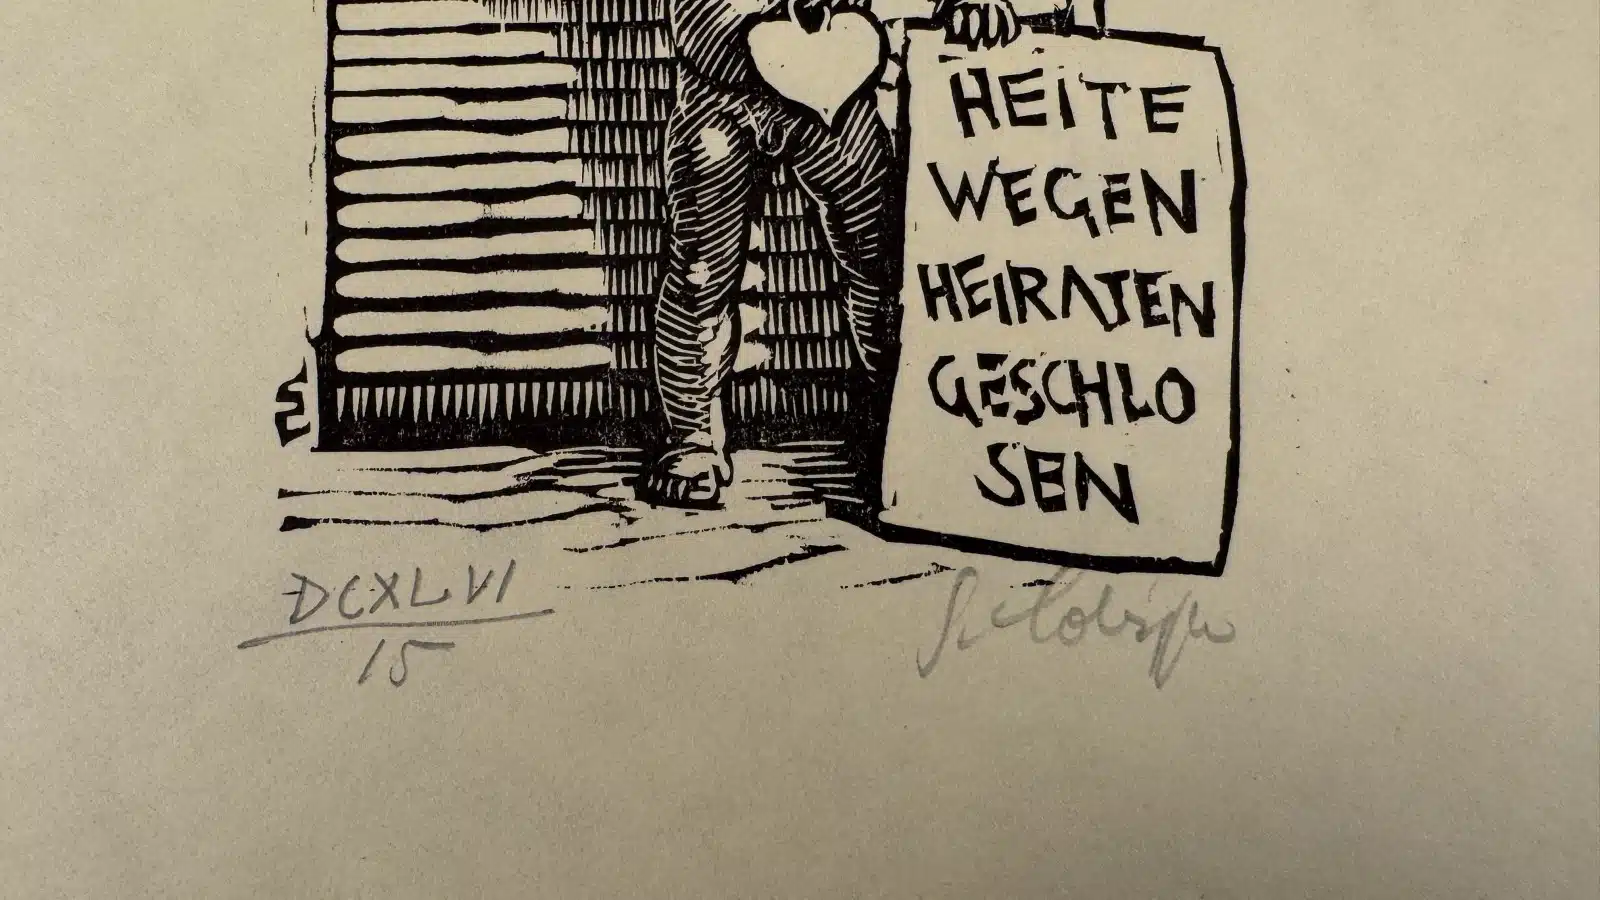 HEITE
WEGEN
HEIRATEN
GESCHLO
SEN
DCXLVI
15